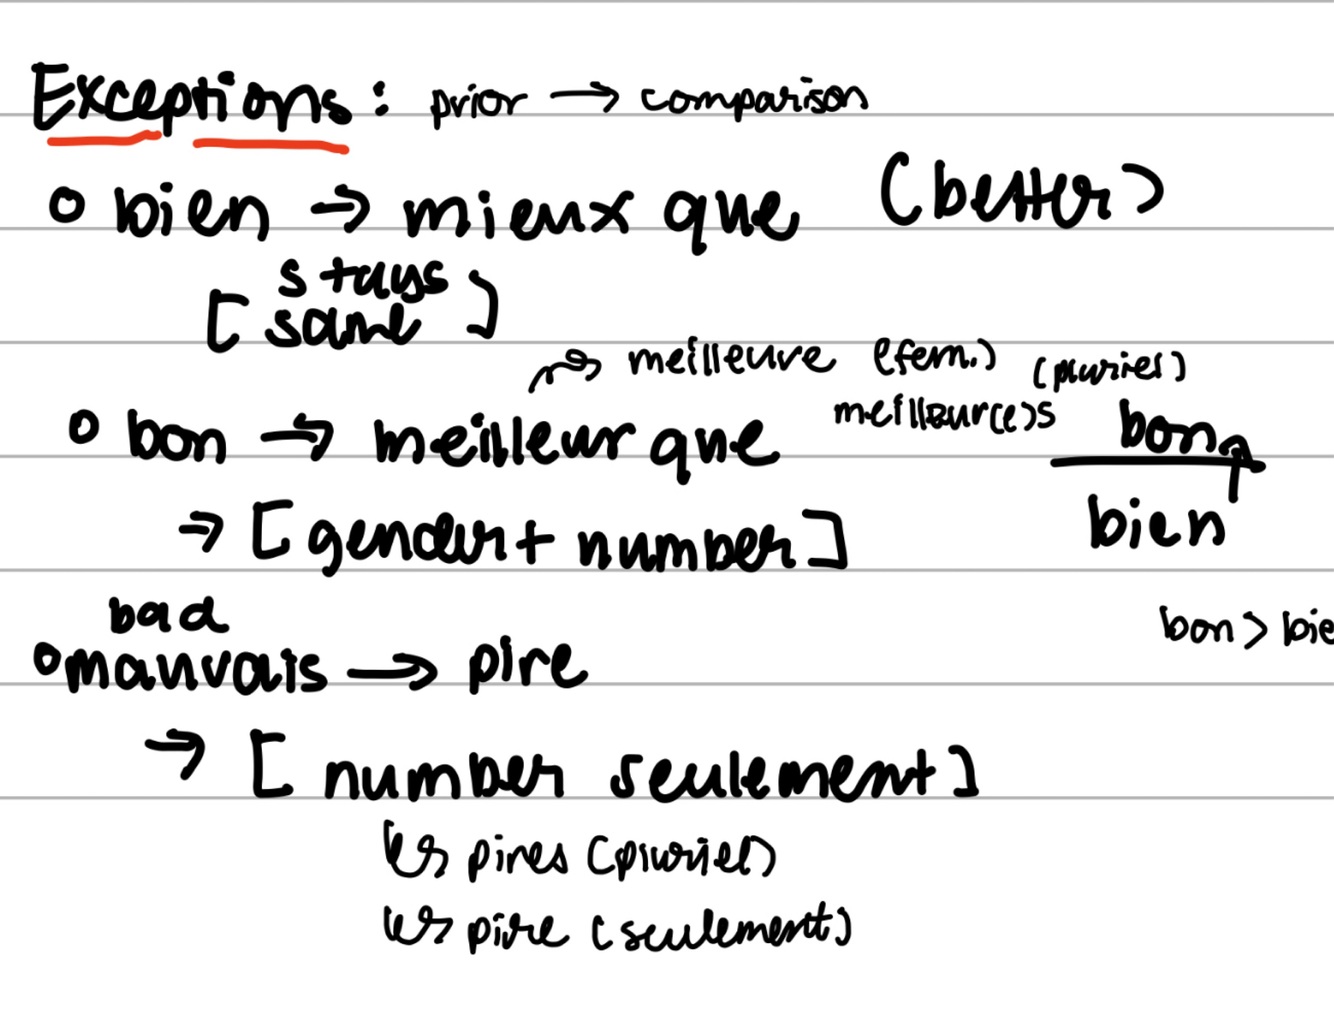 Exceptions : prior → comparison
o bien → mieux que (better)
[ stays same ]
→ meilleure (fem.) (pluriel)
meilleure(e)s
o bon → meilleur que
bon ↑
bien
→ [gender + number]
bad
bon > bie
o mauvais → pire
→ [ number seulement ]
↳ pires (pluriel)
↳ pire (seulement)